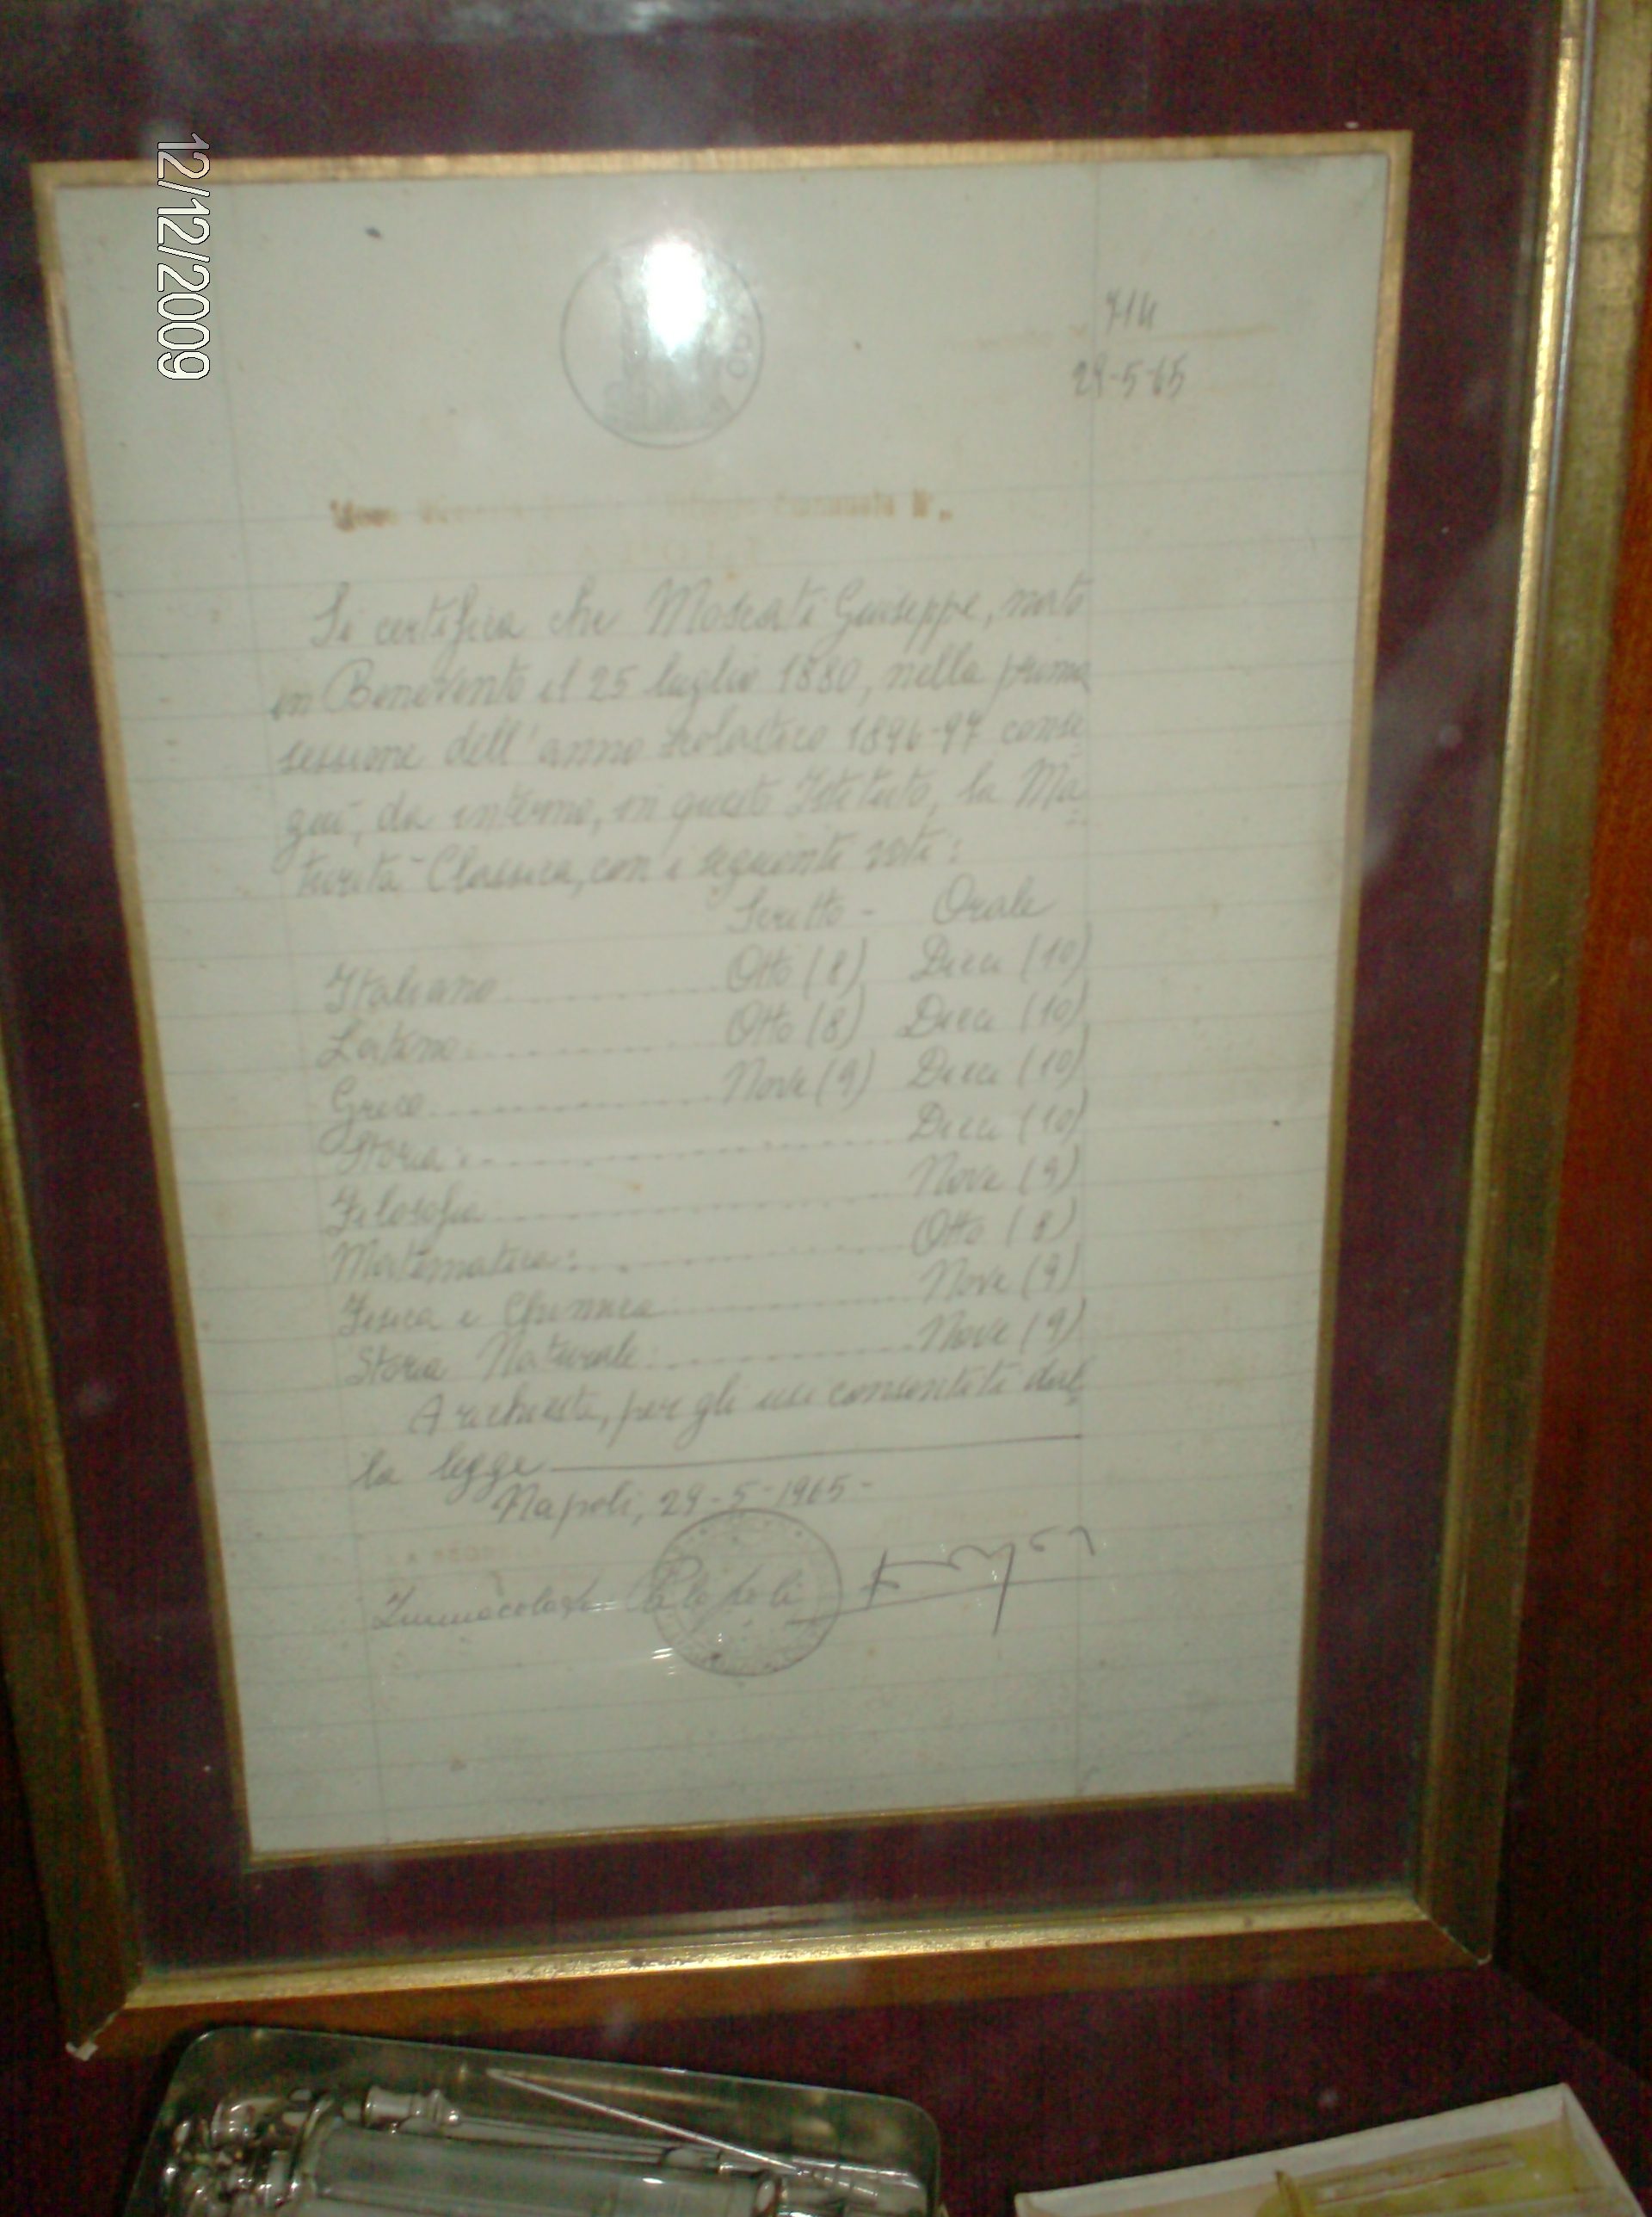 12/12/2009
714
29-5-65
Emanuele II.
NAPOLI
Si certifica che Moscati Giuseppe, nato
in Benevento il 25 luglio 1880, nella prima
sessione dell'anno scolastico 1896-97 conse
guì, da interno, in questo Istituto, la Ma
turità Classica, con i seguenti voti:
Scritto - Orale
Italiano Otto (8) Dieci (10)
Latino Otto (8) Dieci (10)
Greco Nove (9) Dieci (10)
Storia: Dieci (10)
Filosofia Nove (9)
Matematica: Otto (8)
Fisica e Chimica Nove (9)
Storia Naturale Nove (9)
A richiesta, per gli usi consentiti dal
la legge
Napoli, 29-5-1965-
LA
Immacolata